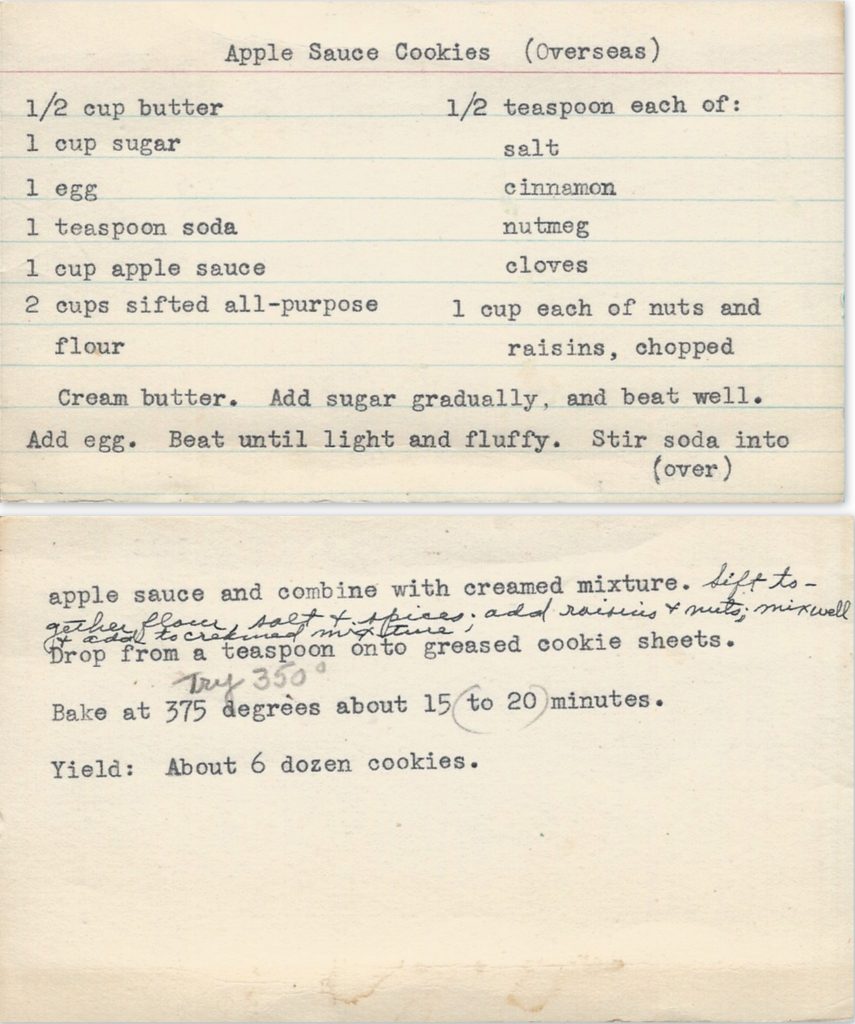 Apple Sauce Cookies (Overseas)
1/2 cup butter
1 cup sugar
1 egg
1 teaspoon soda
1 cup apple sauce
2 cups sifted all-purpose
flour
1/2 teaspoon each of:
salt
cinnamon
nutmeg
cloves
1 cup each of nuts and
raisins, chopped
Cream butter. Add sugar gradually, and beat well.
Add egg. Beat until light and fluffy. Stir soda into
(over)
apple sauce and combine with creamed mixture. Sift to-
gether flour, salt & spices; add raisins & nuts; mix well
& add to creamed mixture.
Drop from a teaspoon onto greased cookie sheets.
Try 350°
Bake at 375 degrees about 15 (to 20) minutes.
Yield: About 6 dozen cookies.